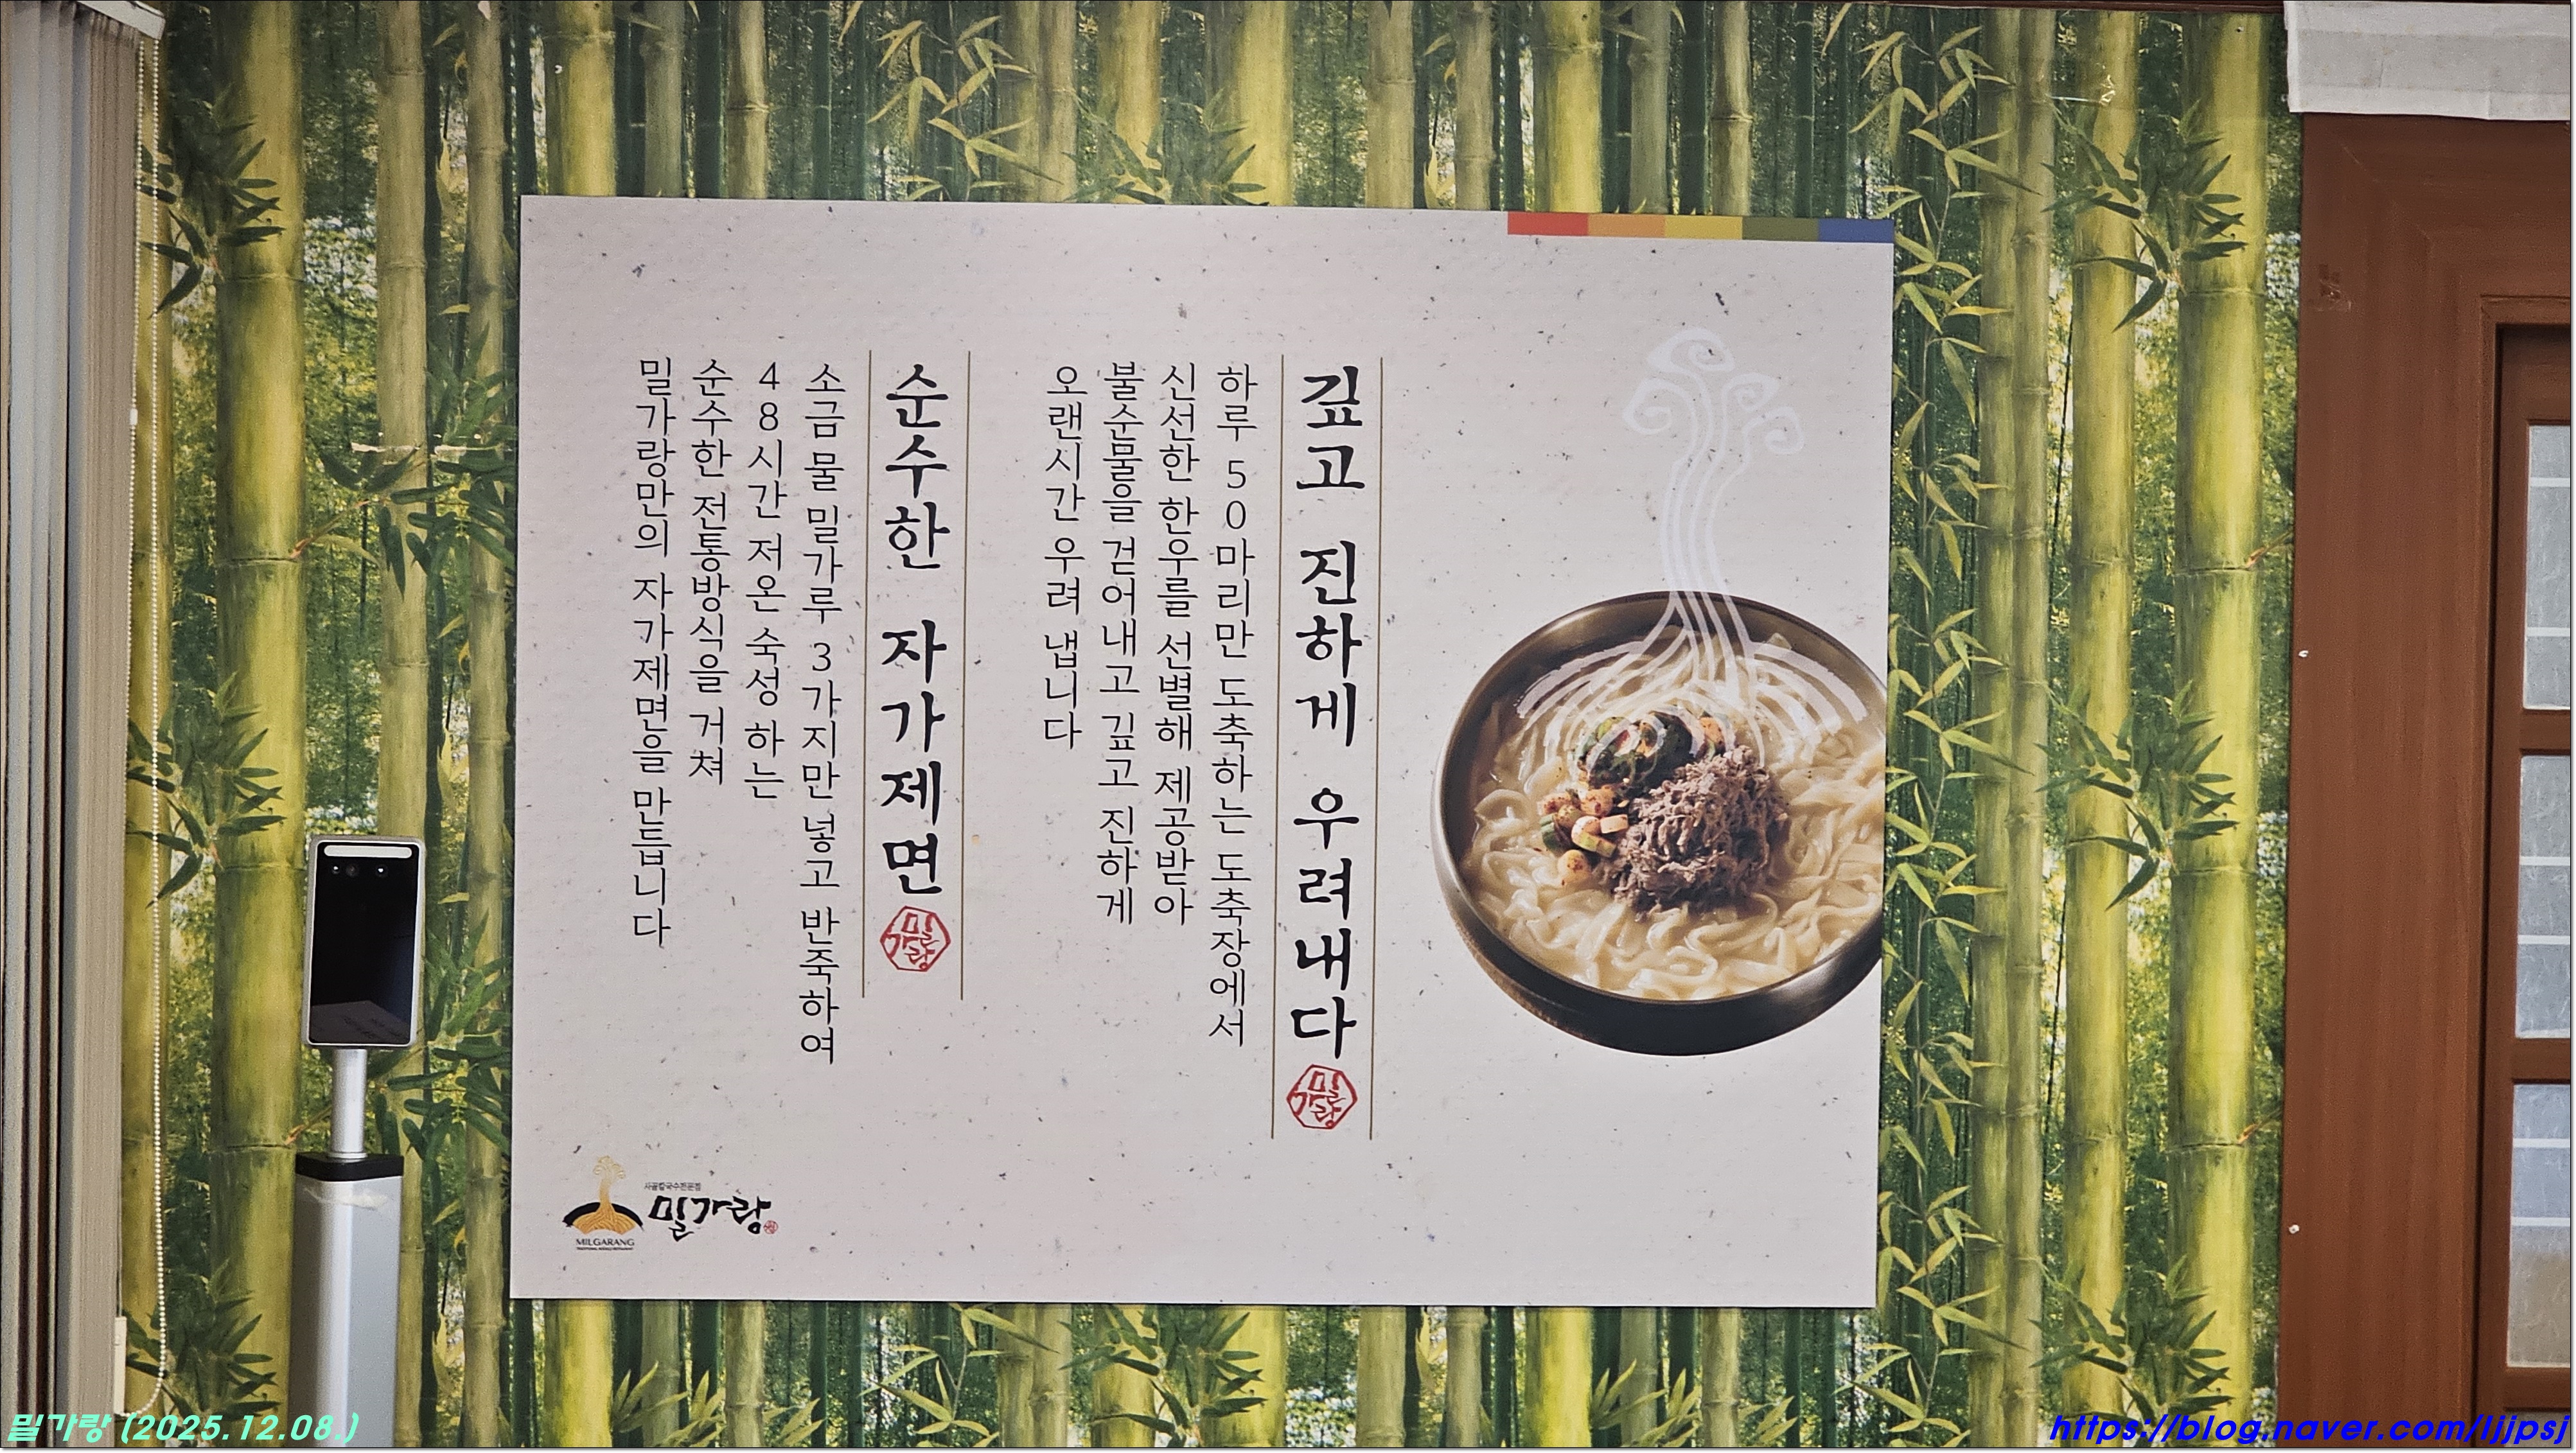 깊고 진하게 우려내다
밀가랑
하루 50마리만 도축하는 도축장에서
신선한 한우를 선별해 제공받아
불순물을 걷어내고 깊고 진하게
오랜시간 우려 냅니다
순수한 자가제면
밀가랑
소금 물 밀가루 3가지만 넣고 반죽하여
48시간 저온 숙성 하는
순수한 전통방식을 거쳐
밀가랑만의 자가제면을 만듭니다
사골칼국수전문점
밀가랑
MILGARANG
TRADITIONAL NOODLE RESTAURANT
밀가랑 (2025.12.08.)
https://blog.naver.com/ljjpsj